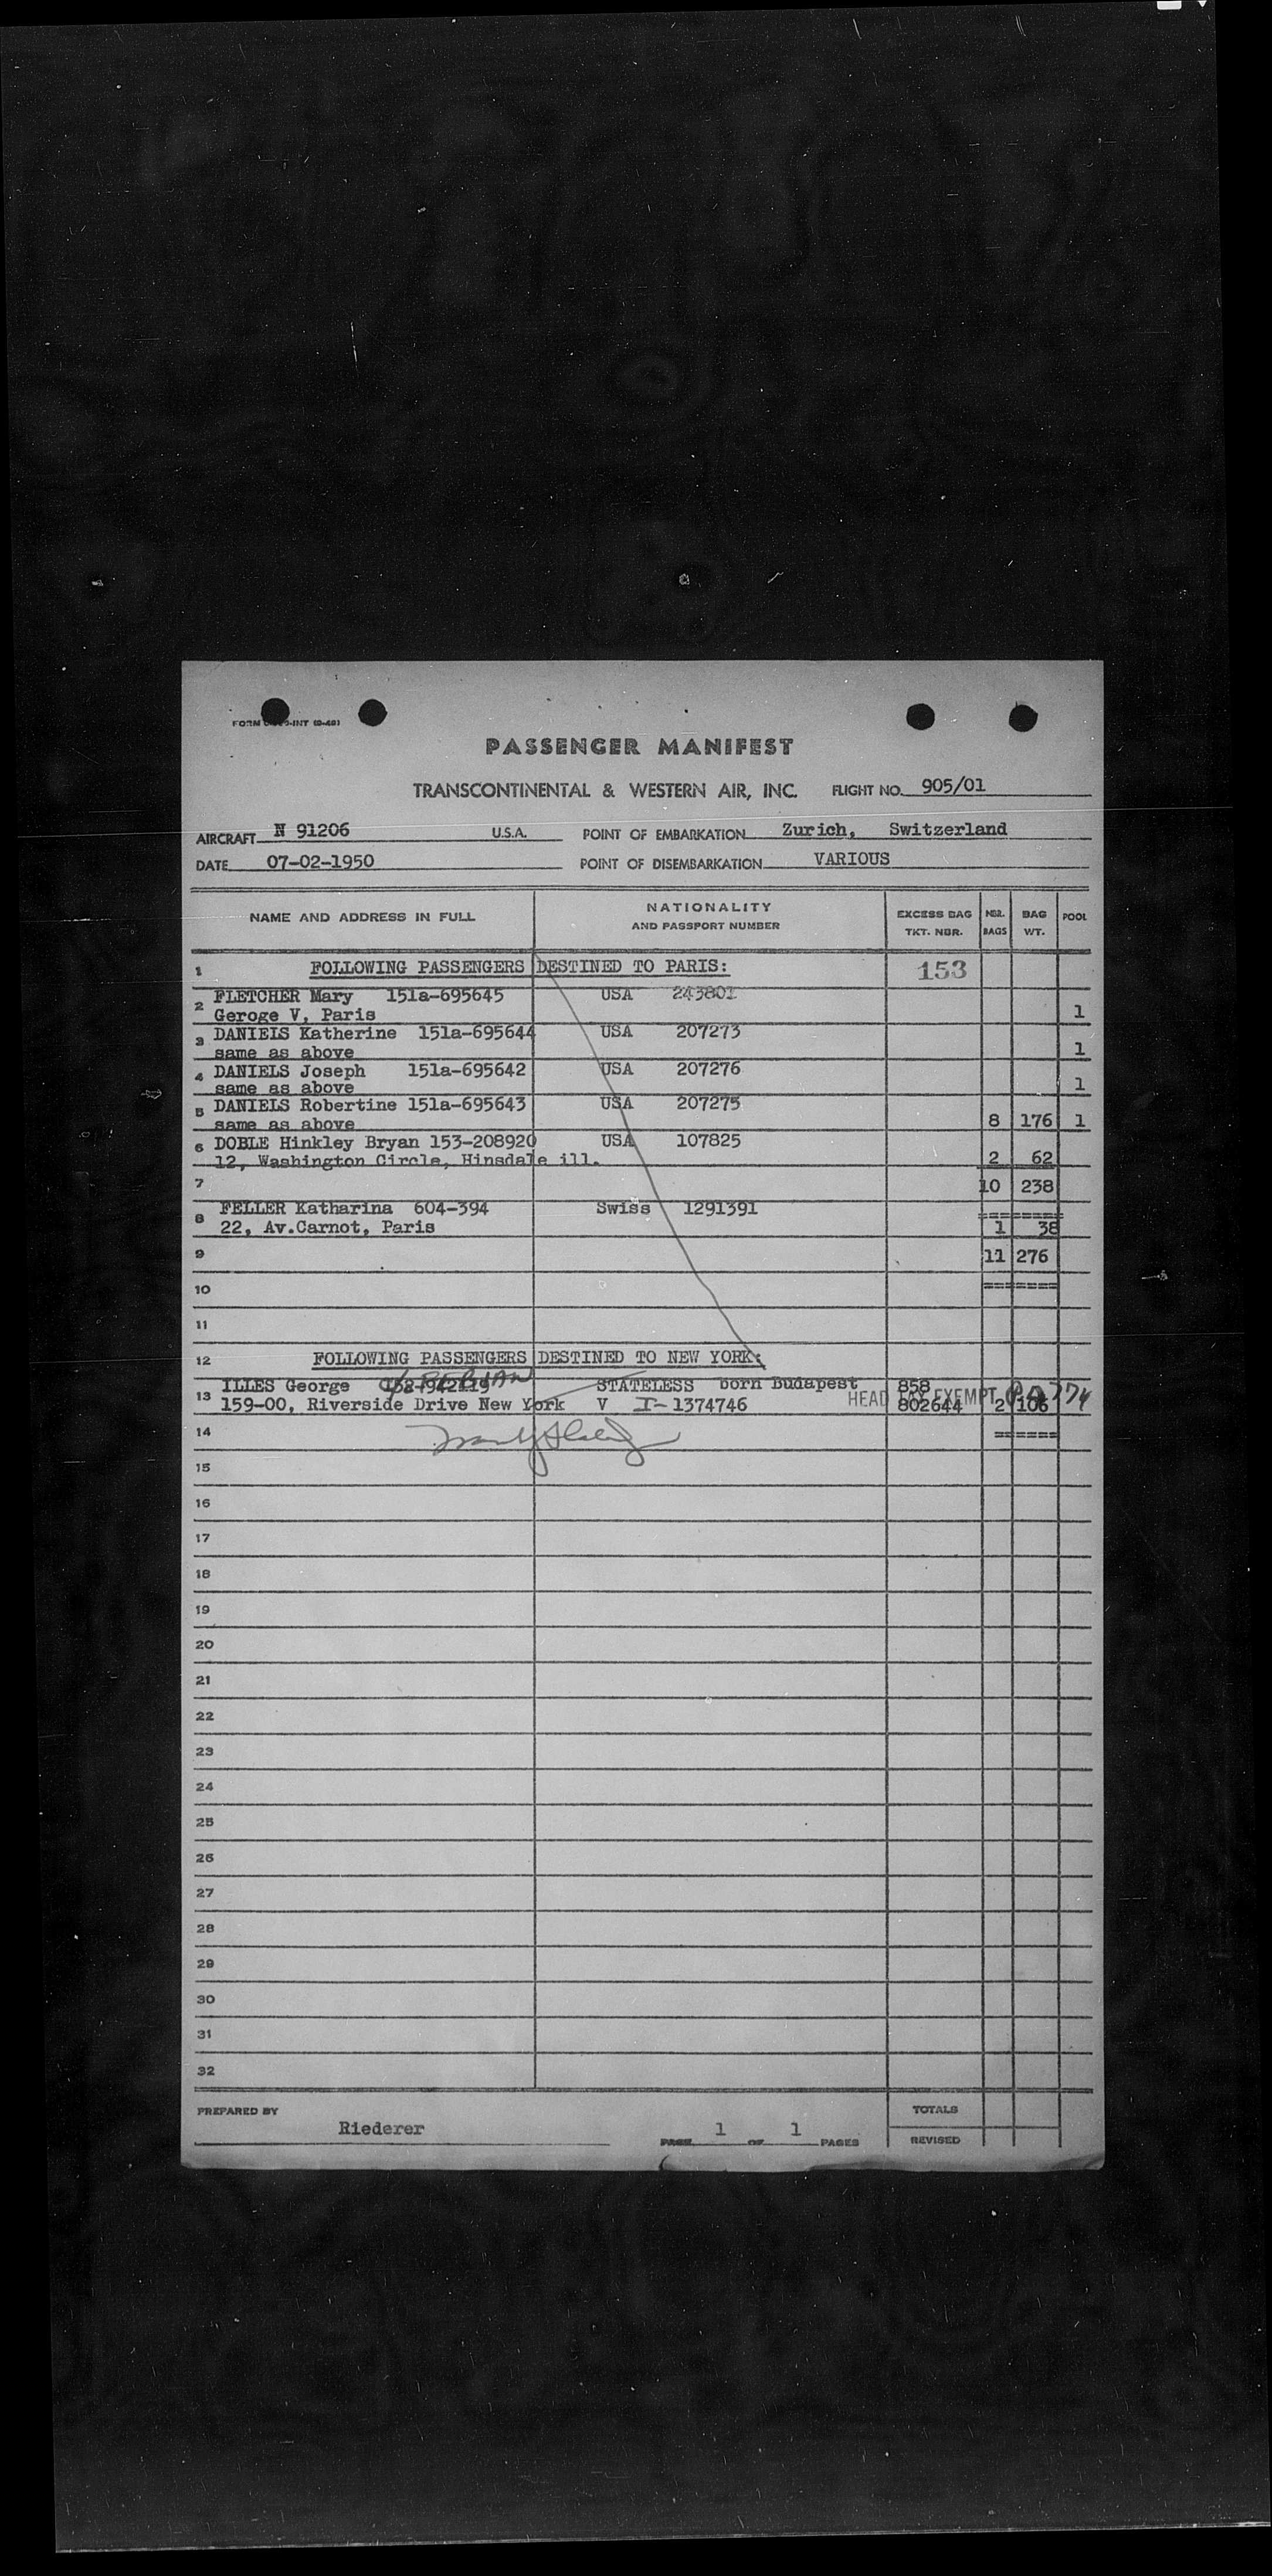 PASSENGER MANIFEST
TRANSCONTINENTAL & WESTERN AIR, INC. FLIGHT NO. 905/01
AIRCRAFT N 91206 U.S.A. POINT OF EMBARKATION Zurich, Switzerland
DATE 07-02-1950 POINT OF DISEMBARKATION VARIOUS
NAME AND ADDRESS IN FULL NATIONALITY AND PASSPORT NUMBER EXCESS BAG TKT. NBR. NBR. BAGS BAG WT. POOL
1 FOLLOWING PASSENGERS DESTINED TO PARIS: 153
2 FLETCHER Mary 151a-695645 USA 243801
Geroge V, Paris 1
3 DANIELS Katherine 151a-695644 USA 207273
same as above 1
4 DANIELS Joseph 151a-695642 USA 207276
same as above 1
5 DANIELS Robertine 151a-695643 USA 207275
same as above 8 176 1
6 DOBLE Hinkley Bryan 153-208920 USA 107825
12, Washington Circle, Hinsdale ill. 2 62
7 10 238
8 FELLER Katharina 604-394 Swiss 1291391
22, Av.Carnot, Paris 1 38
9 11 276
10
11
12 FOLLOWING PASSENGERS DESTINED TO NEW YORK:
13 ILLES George STATELESS born Budapest 858
159-00, Riverside Drive New York V I-1374746 HEAD TAX EXEMPT 802644 2 106
14
15
16
17
18
19
20
21
22
23
24
25
26
27
28
29
30
31
32
PREPARED BY Riederer PAGE 1 OF 1 PAGES TOTALS
REVISED